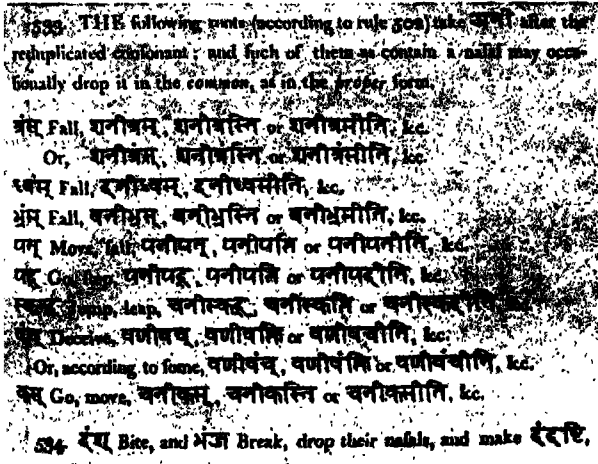 533. THE following roots (according to rule 502) take after the
reduplicated consonant; and such of them as contain a nasal may occa-
sionally drop it in the common, as in the proper form.
Fall, or &c.
Or, or &c.
ध्वंस् Fall, दनीध्वस्, दनीध्वसीति, &c.
भ्रंस् Fall, बनीभ्रस्, बनीभ्रस्ति or बनीभ्रसीति, &c.
पत् Move, fall, पनीपत्, पनीपत्ति or पनीपतीति, &c.
पद् पनीपद्, पनीपत्ति or पनीपदीति, &c.
Jump, leap, चनीस्कद्, चनीस्कत्ति or
Deceive, वणीवच्, वणीवक्ति or वणीवचीति, &c.
Or, according to some, वणीवंच्, वणीवंक्ति or वणीवंचीति, &c.
कस् Go, move, चनीकस्, चनीकस्ति or चनीकसीति, &c.
534. दंश् Bite, and भंज Break, drop their nasals, and make दंदष्टि,